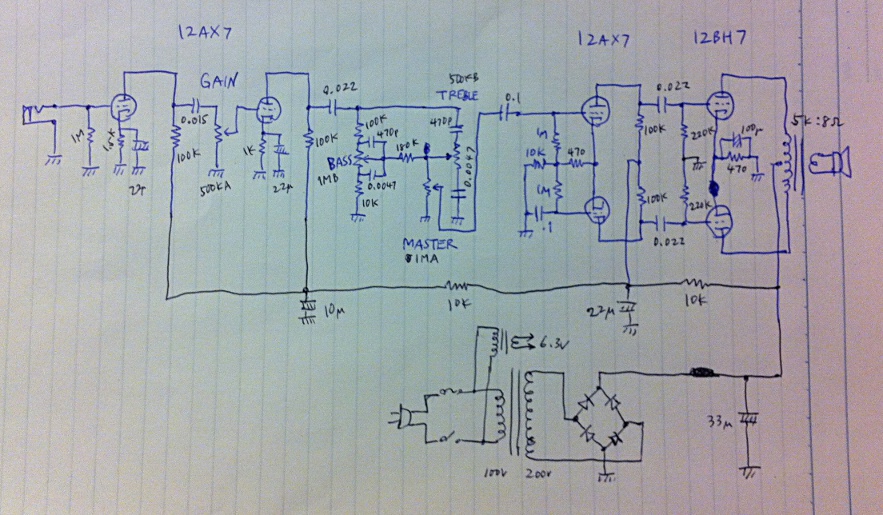 12AX7
12AX7
12BH7
GAIN
0.015
1M
100K
500KA
1K
22μ
100K
0.022
100K
470p
BASS
1MB
0.0047
10K
180K
500KB
TREBLE
470p
0.0047
MASTER
1MA
0.1
1M
10K
470
1M
.1
0.022
100K
100K
0.022
220K
220K
100μ
470
5K:8Ω
10μ
10K
22μ
10K
6.3V
100V
200V
33μ